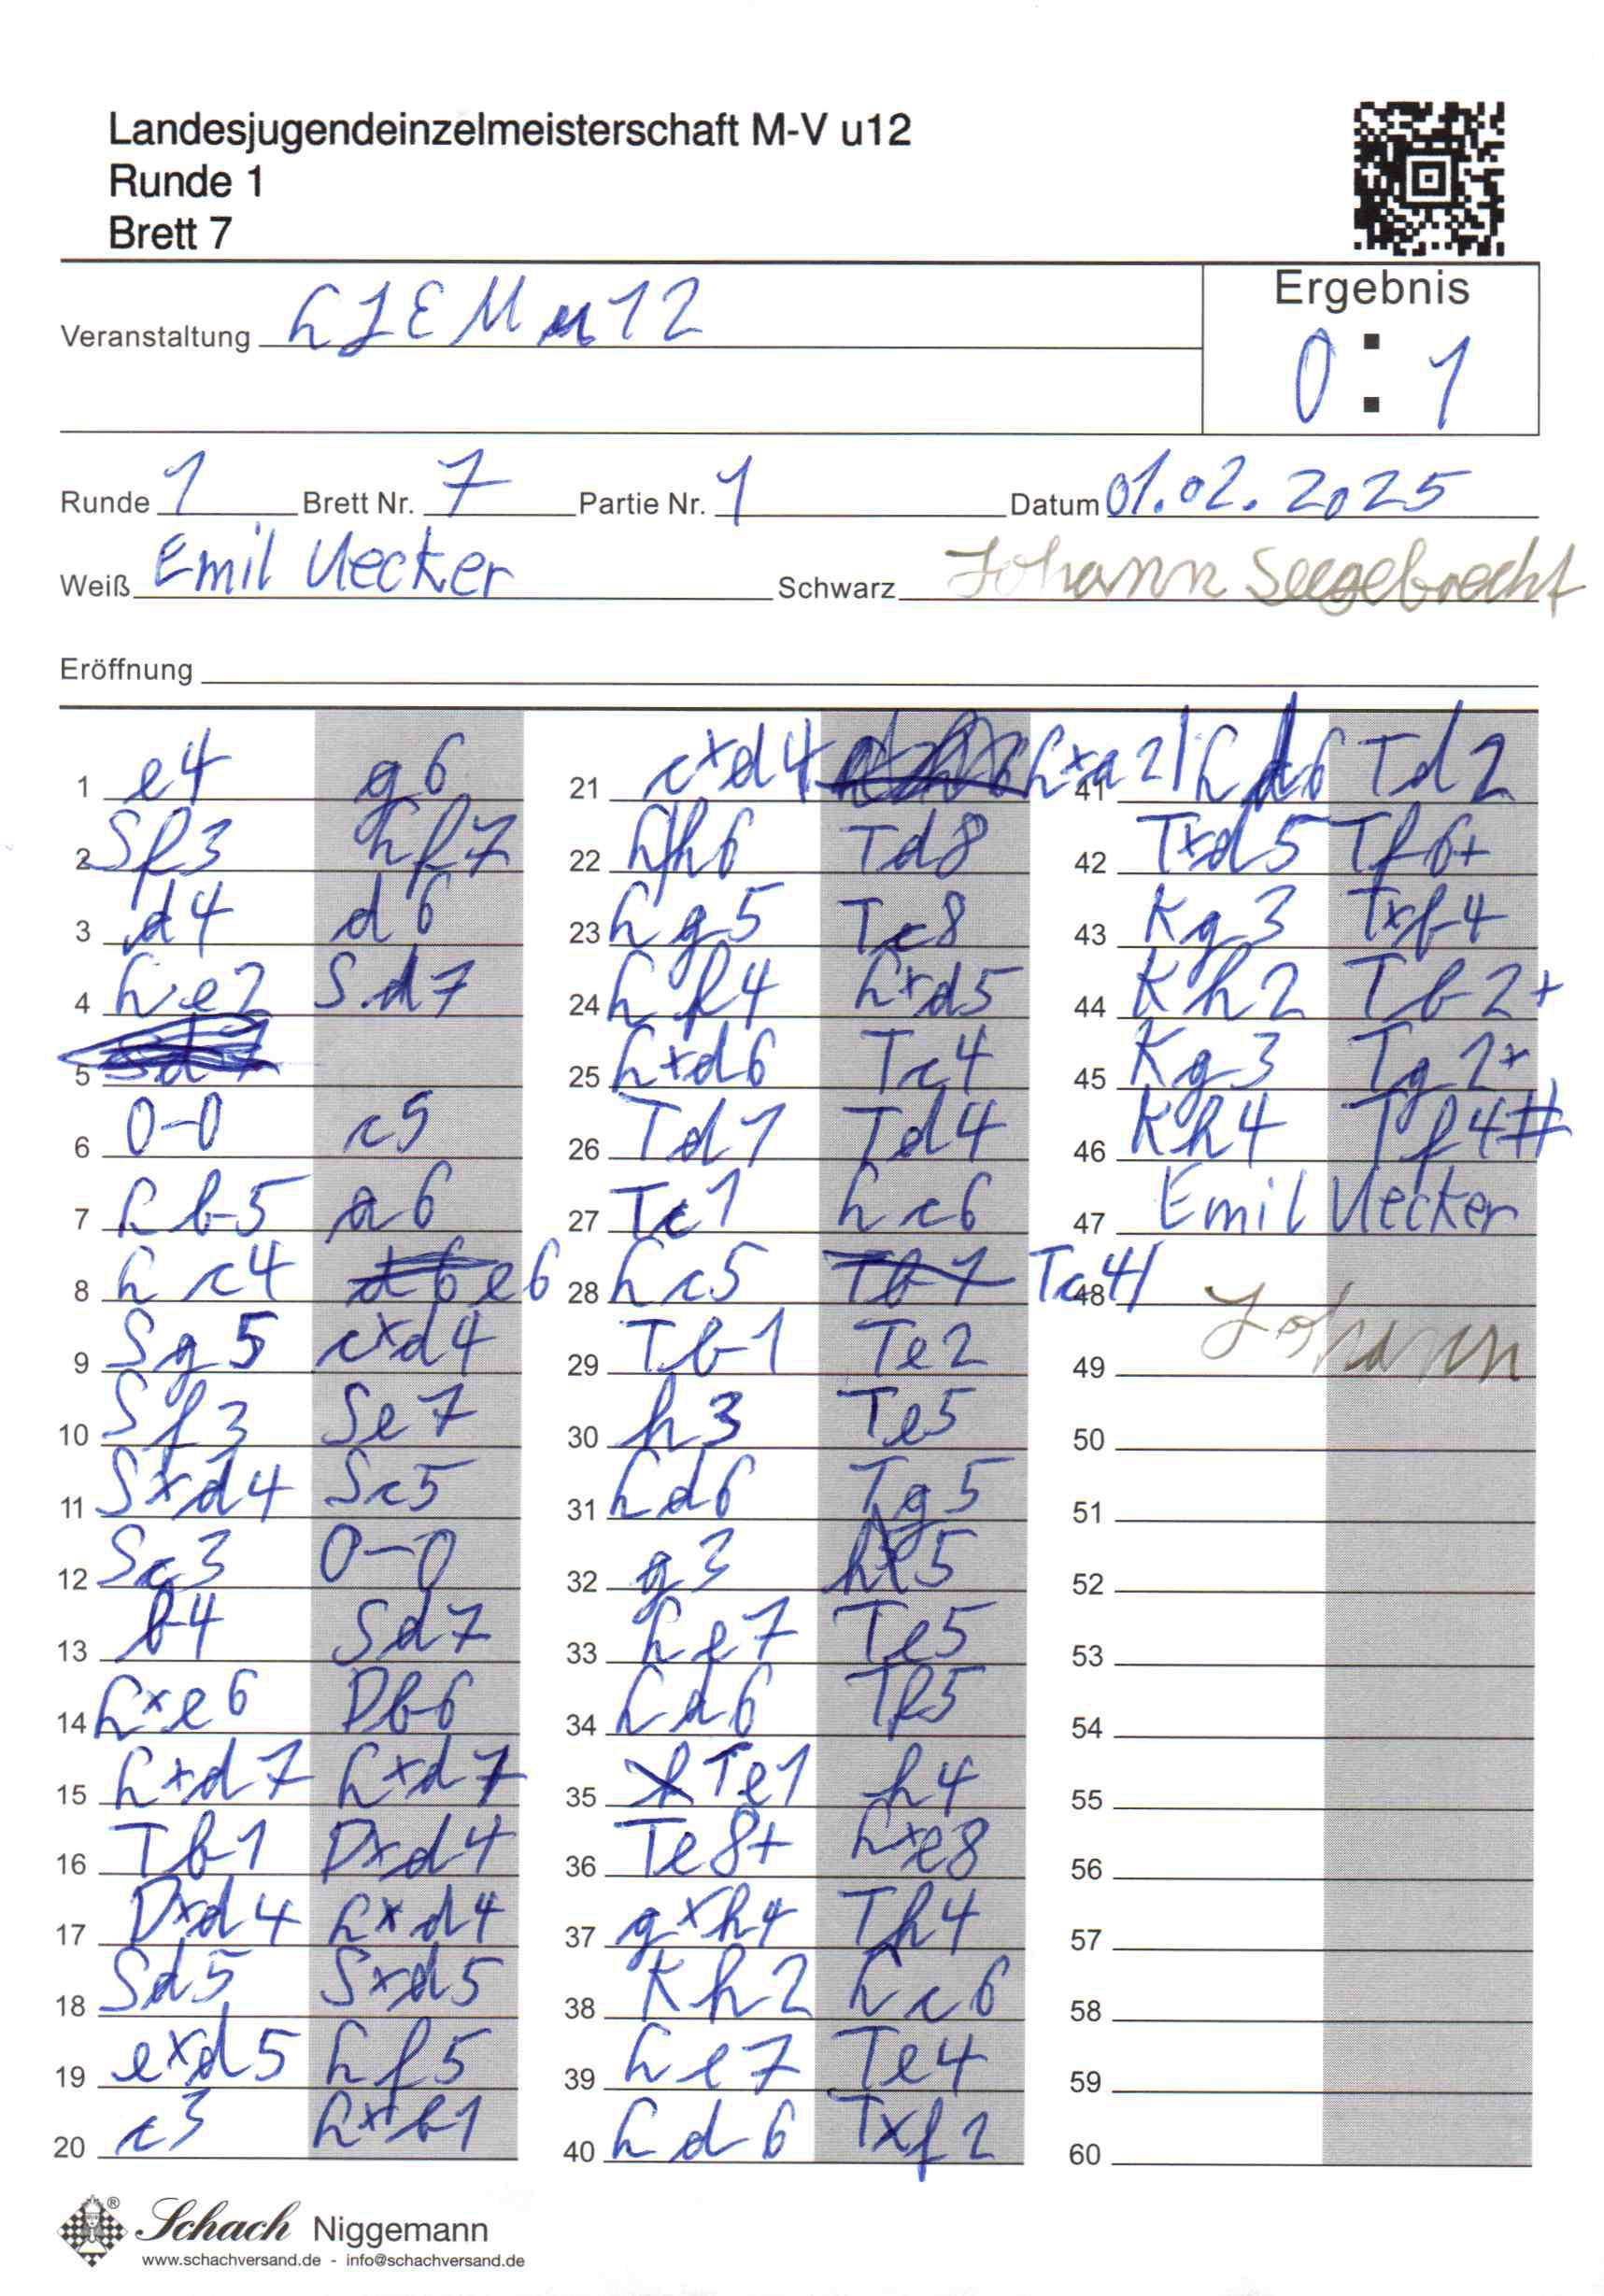 Landesjugendeinzelmeisterschaft M-V u12
Runde 1
Brett 7
Ergebnis
0 : 1
Veranstaltung LJEM u12
Runde 1 Brett Nr. 7 Partie Nr. 1 Datum 01.02.2025
Weiß Emil Uecker Schwarz Johann Seegebrecht
Eröffnung
1 e4 g6
2 Sf3 Lf7
3 d4 d6
4 Le2 Sd7
5
6 0-0 c5
7 Lb5 a6
8 Lc4 e6
9 Sg5 cxd4
10 Sf3 Se7
11 Sxd4 Sc5
12 Sc3 0-0
13 b4 Sd7
14 Lxe6 Db6
15 Lxd7 Lxd7
16 Tb1 Dxd4
17 Dxd4 Lxd4
18 Sd5 Sxd5
19 exd5 Lf5
20 c3 Lxb1
21 cxd4 Lxa2
22 Lh6 Td8
23 Lg5 Tc8
24 Lf4 Lxd5
25 Lxd6 Tc4
26 Td1 Td4
27 Tc1 Lc6
28 Lc5 Tc4
29 Tb1 Te2
30 h3 Te5
31 Ld6 Tg5
32 g3 h5
33 Le7 Te5
34 Ld6 Tf5
35 Te1 h4
36 Te8+ Lxe8
37 gxh4 Th4
38 Kh2 Lc6
39 Le7 Te4
40 Ld6 Txf2
41 Ld6 Td2
42 Txd5 Tf6+
43 Kg3 Txf4
44 Kh2 Tb2+
45 Kg3 Tg2+
46 Kh4 Tf4#
47 Emil Uecker
48
49 Johann
50
51
52
53
54
55
56
57
58
59
60
Schach Niggemann
www.schachversand.de - info@schachversand.de